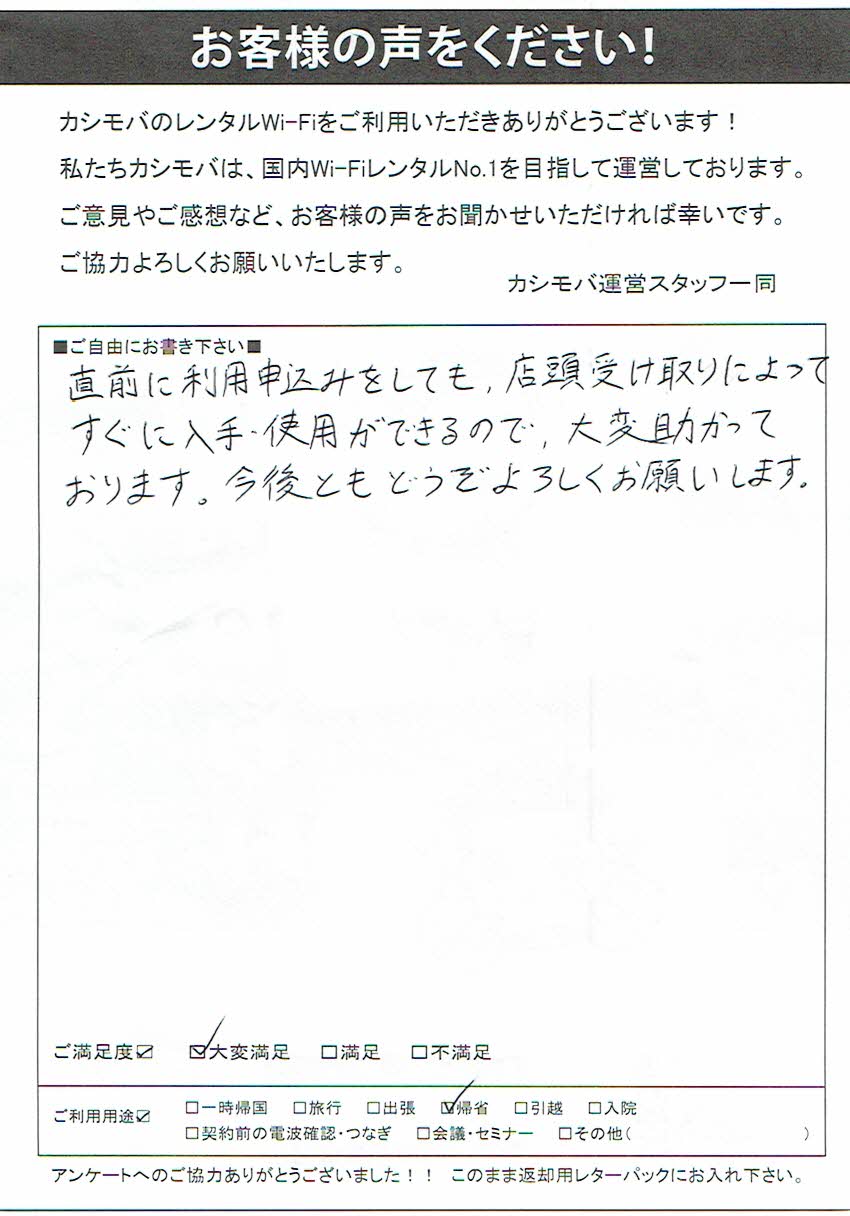 お客様の声をください!
カシモバのレンタルWi-Fiをご利用いただきありがとうございます！
私たちカシモバは、国内Wi-FiレンタルNo.1を目指して運営しております。
ご意見やご感想など、お客様の声をお聞かせいただければ幸いです。
ご協力よろしくお願いいたします。
カシモバ運営スタッフ一同
■ご自由にお書き下さい■
直前に利用申込みをしても, 店頭受け取りによって
すぐに入手・使用ができるので, 大変助かって
おります。今後ともどうぞよろしくお願いします。
ご満足度☑ ☑大変満足 □満足 □不満足
ご利用用途☑ □一時帰国 □旅行 □出張 ☑帰省 □引越 □入院
□契約前の電波確認・つなぎ □会議・セミナー □その他( )
アンケートへのご協力ありがとうございました！！ このまま返却用レターパックにお入れ下さい。